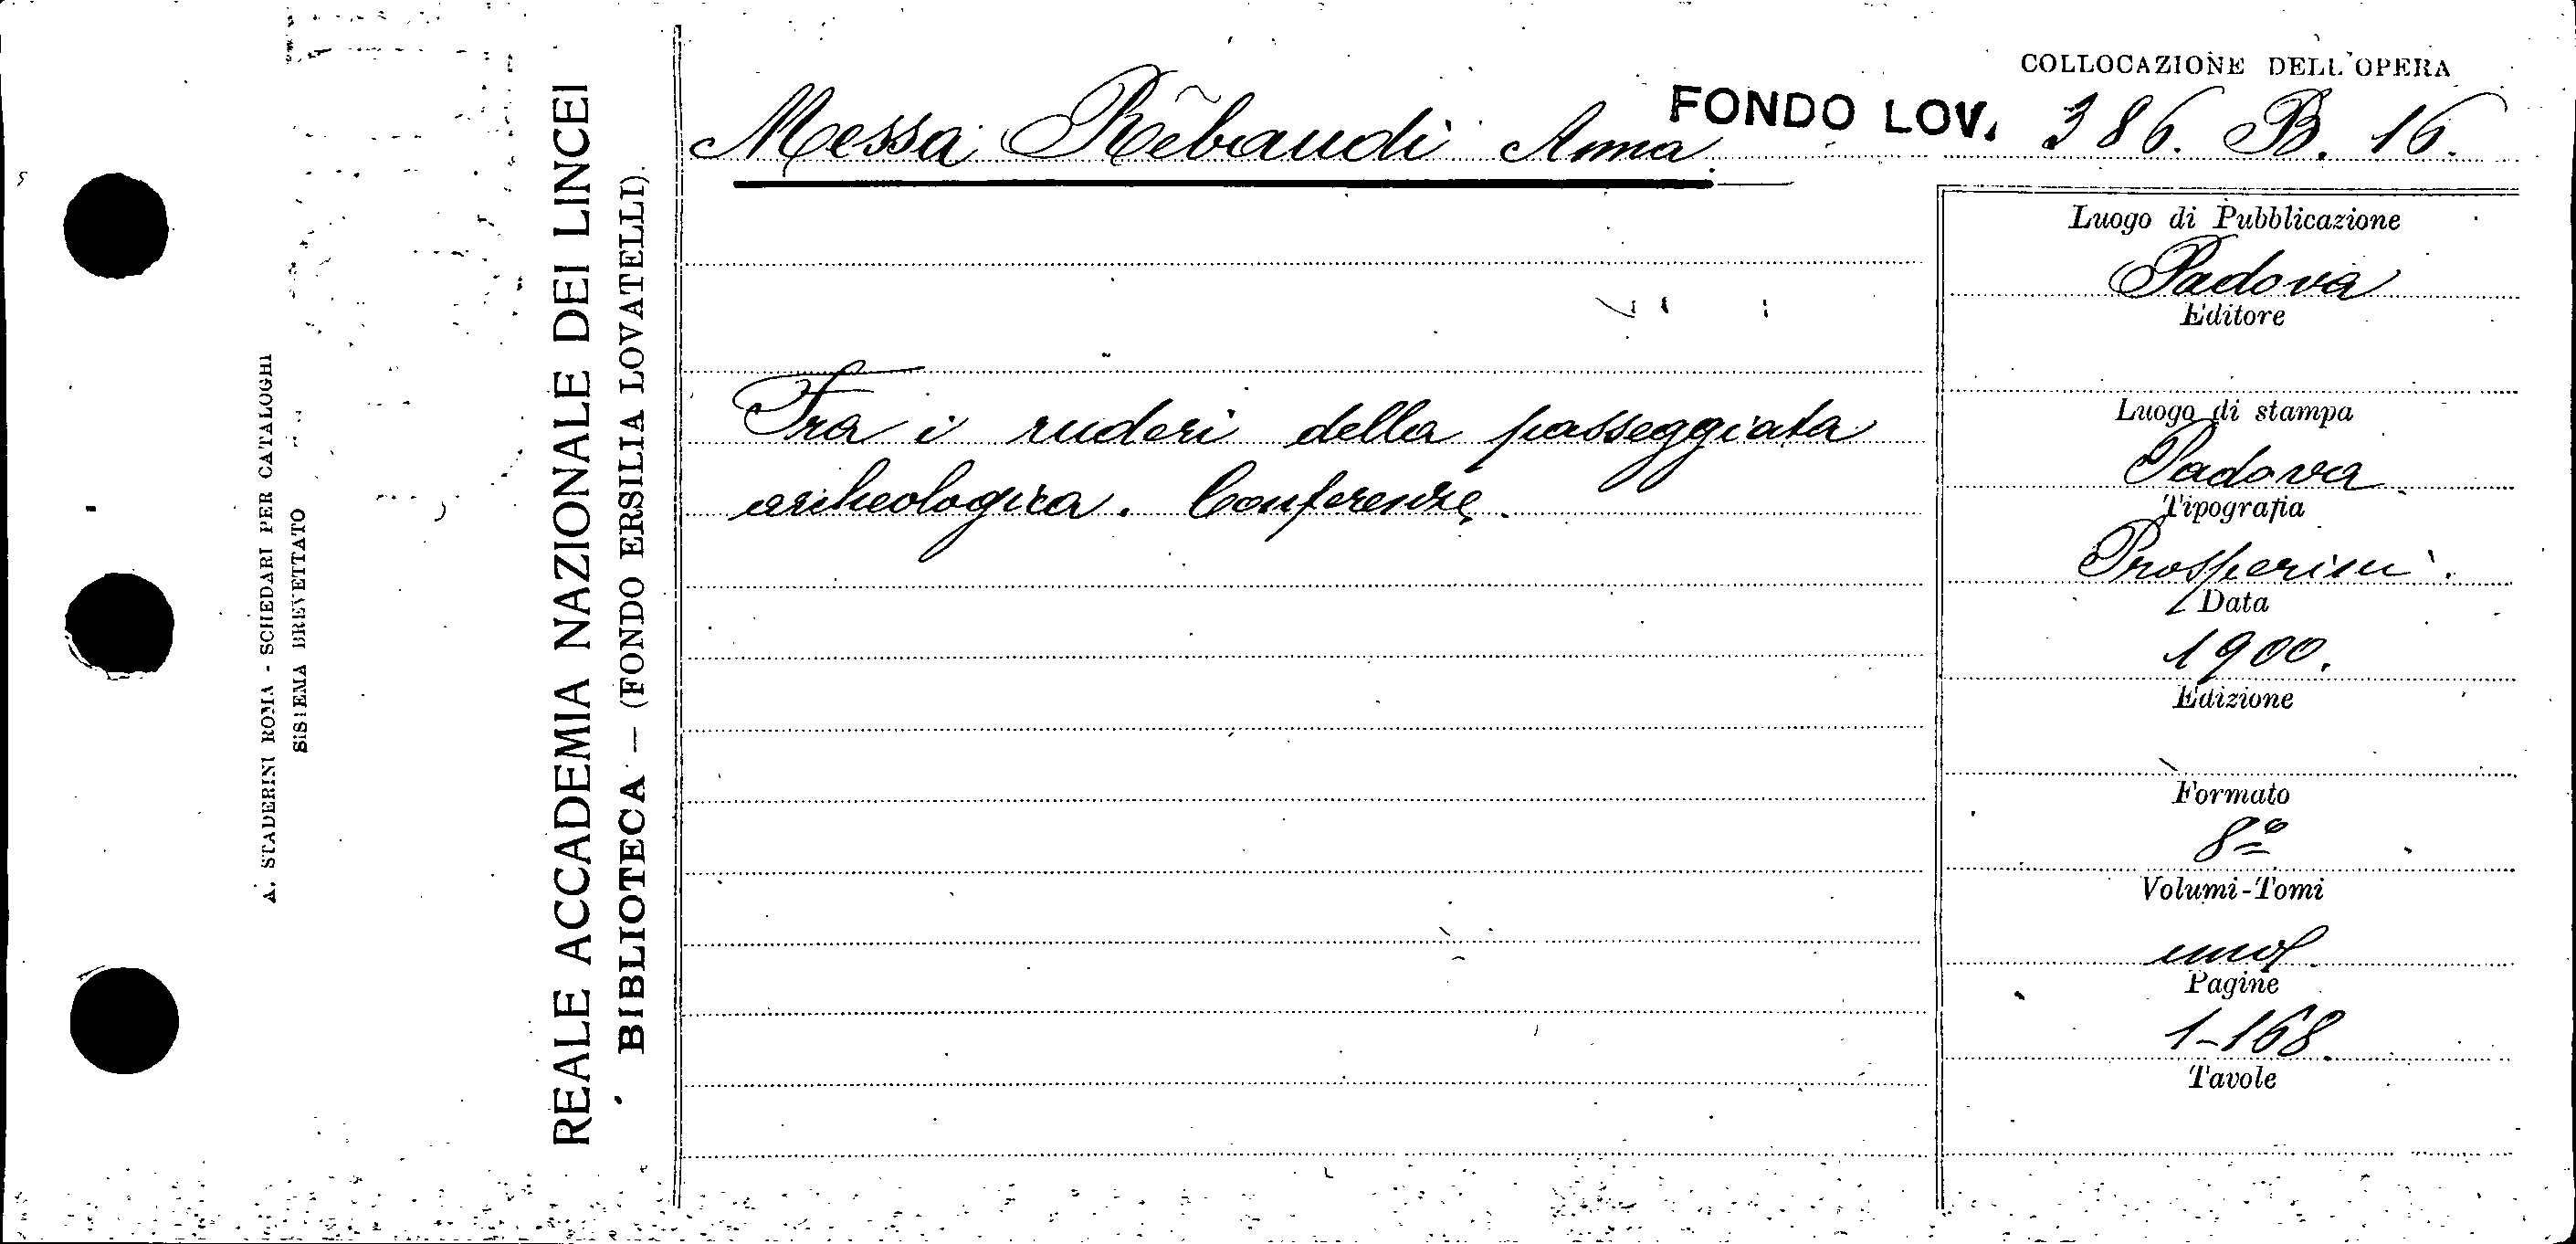 COLLOCAZIONE DELL'OPERA
Messa Rebaudi Anna FONDO LOV. 386. B. 16.
Luogo di Pubblicazione
Padova
Editore
Fra i ruderi della passeggiata
archeologica. Conferenze.
Luogo di stampa
Padova
Tipografia
Prosperini.
Data
1900.
Edizione
Formato
8º
Volumi-Tomi
Pagine
1-168.
Tavole
REALE ACCADEMIA NAZIONALE DEI LINCEI
BIBLIOTECA — (FONDO ERSILIA LOVATELLI).
A. STADERINI ROMA - SCHEDARI PER CATALOGHI
SISTEMA BREVETTATO